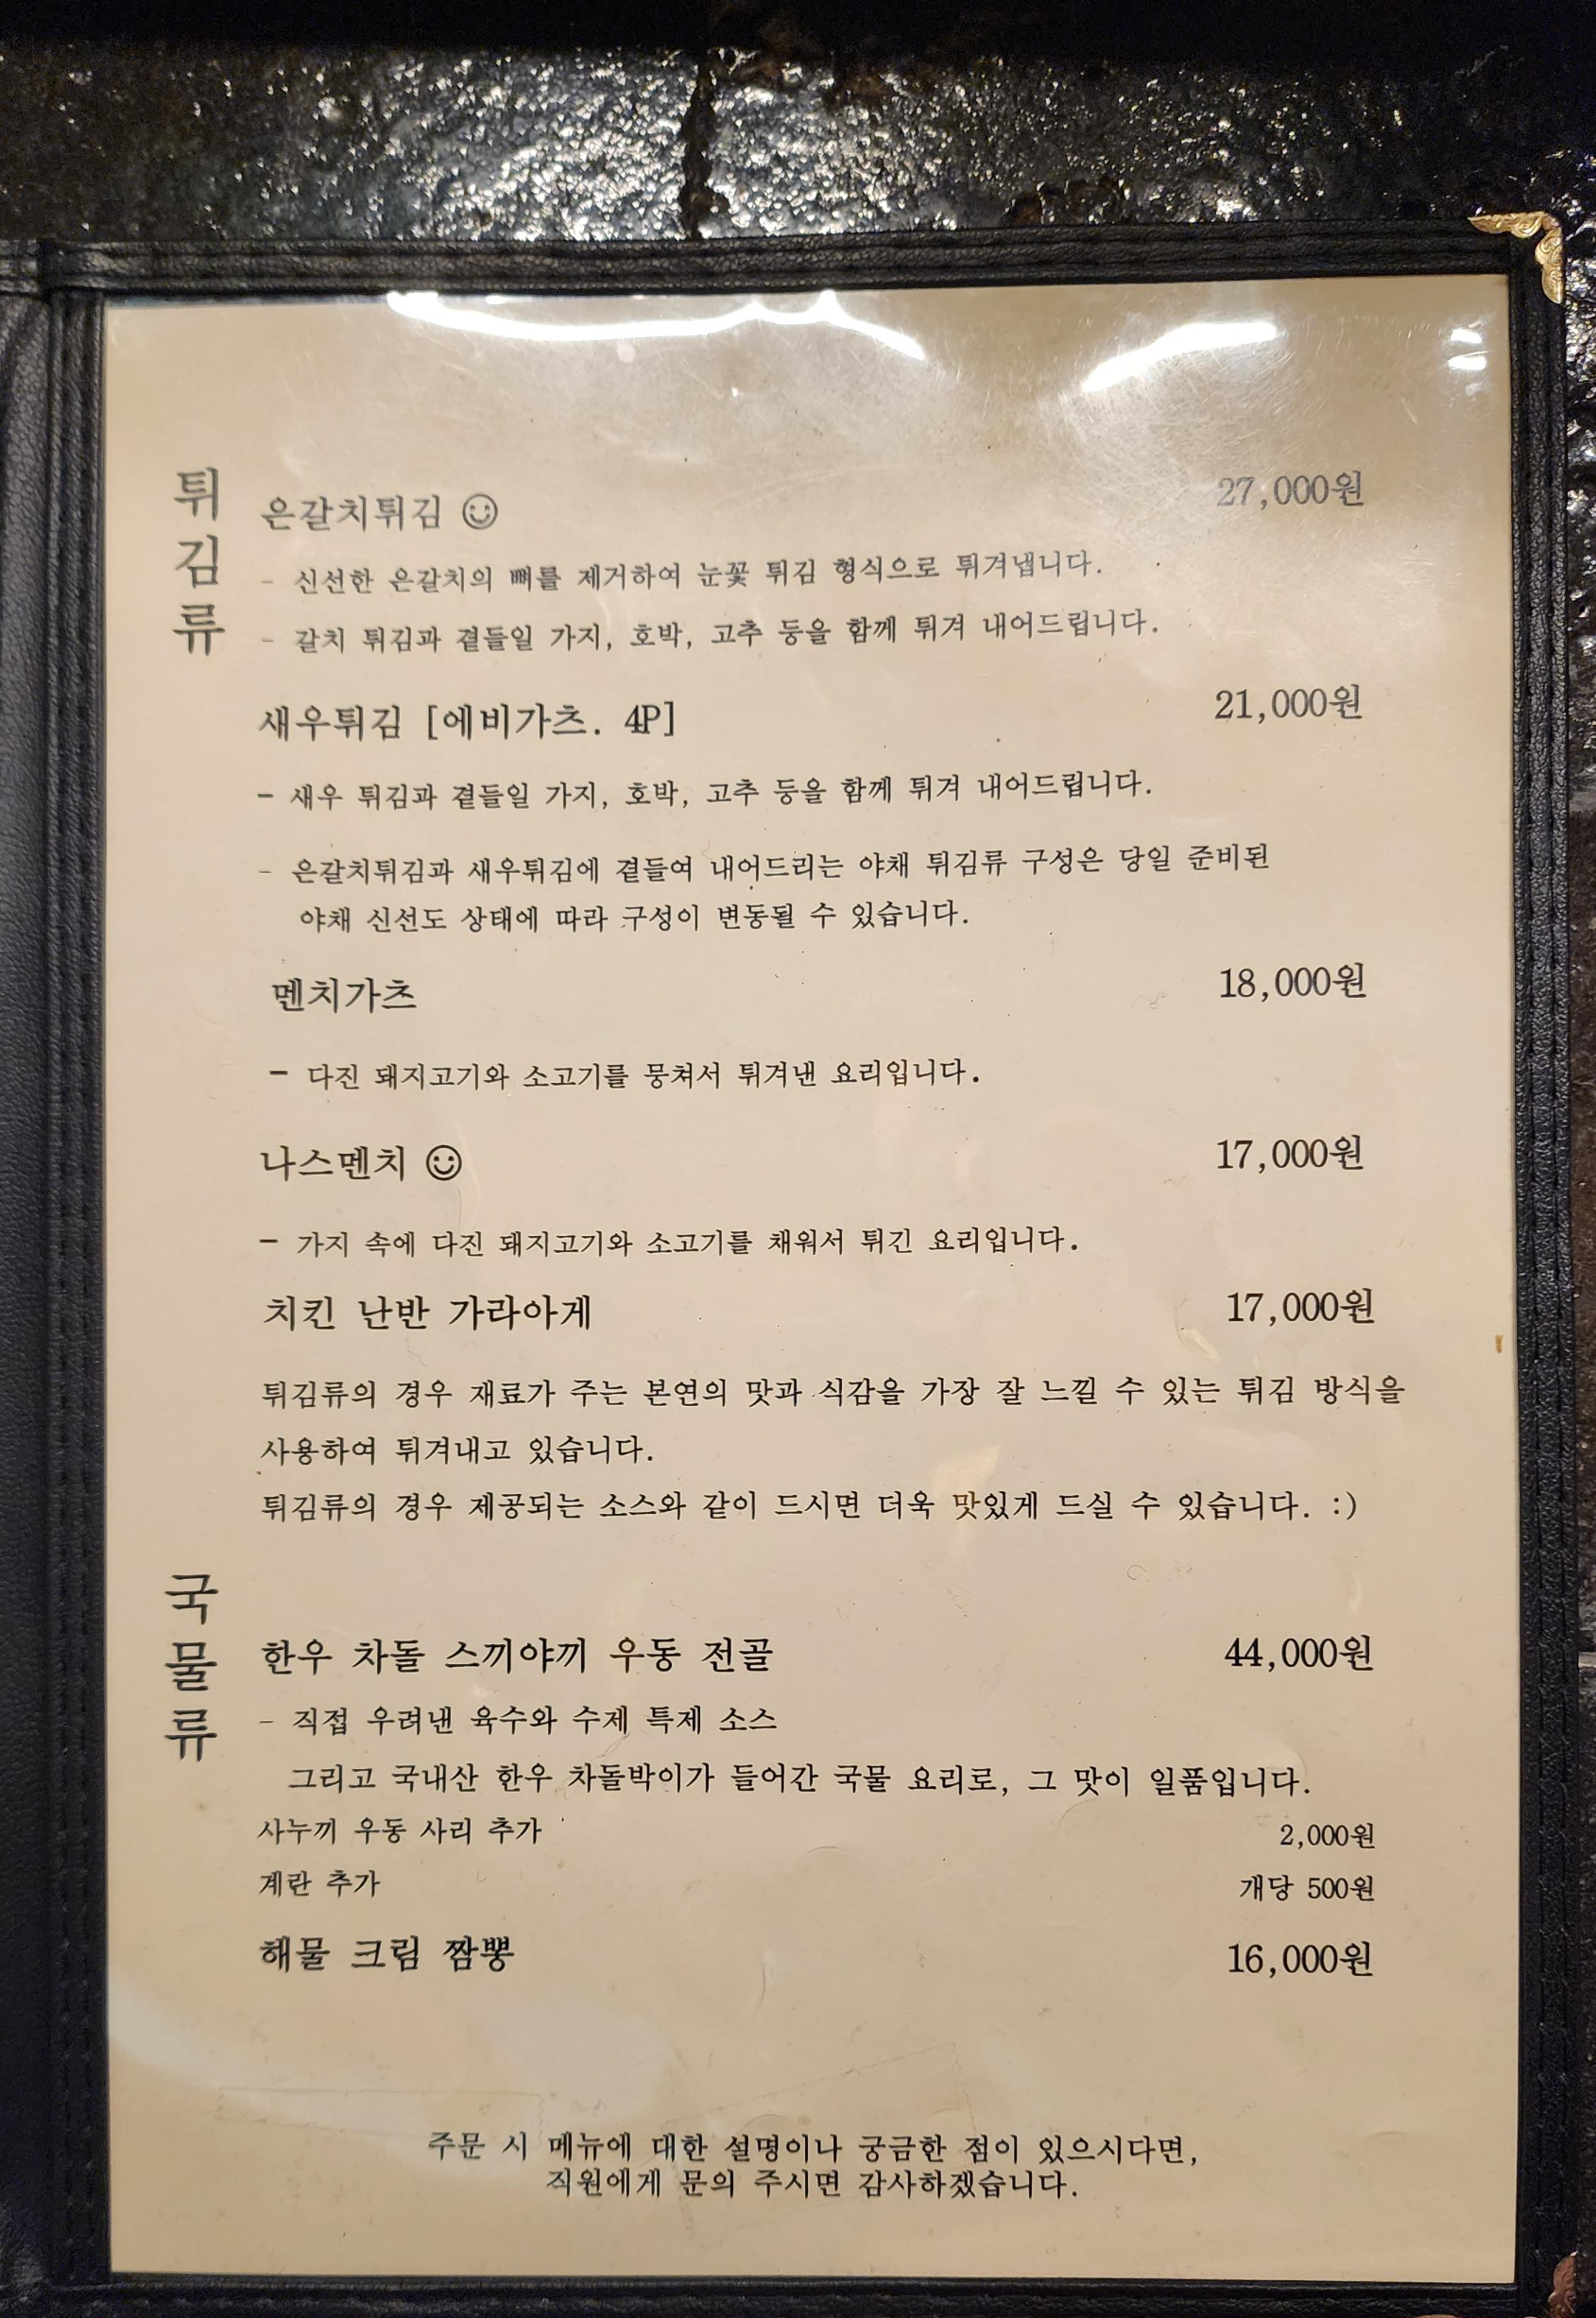 튀김류
은갈치튀김 ☺ 27,000원
- 신선한 은갈치의 뼈를 제거하여 눈꽃 튀김 형식으로 튀겨냅니다.
- 갈치 튀김과 곁들일 가지, 호박, 고추 등을 함께 튀겨 내어드립니다.
새우튀김 [에비가츠. 4P] 21,000원
- 새우 튀김과 곁들일 가지, 호박, 고추 등을 함께 튀겨 내어드립니다.
- 은갈치튀김과 새우튀김에 곁들여 내어드리는 야채 튀김류 구성은 당일 준비된
야채 신선도 상태에 따라 구성이 변동될 수 있습니다.
멘치가츠 18,000원
- 다진 돼지고기와 소고기를 뭉쳐서 튀겨낸 요리입니다.
나스멘치 ☺ 17,000원
- 가지 속에 다진 돼지고기와 소고기를 채워서 튀긴 요리입니다.
치킨 난반 가라아게 17,000원
튀김류의 경우 재료가 주는 본연의 맛과 식감을 가장 잘 느낄 수 있는 튀김 방식을
사용하여 튀겨내고 있습니다.
튀김류의 경우 제공되는 소스와 같이 드시면 더욱 맛있게 드실 수 있습니다. :)
국물류
한우 차돌 스끼야끼 우동 전골 44,000원
- 직접 우려낸 육수와 수제 특제 소스
그리고 국내산 한우 차돌박이가 들어간 국물 요리로, 그 맛이 일품입니다.
사누끼 우동 사리 추가 2,000원
계란 추가 개당 500원
해물 크림 짬뽕 16,000원
주문 시 메뉴에 대한 설명이나 궁금한 점이 있으시다면,
직원에게 문의 주시면 감사하겠습니다.